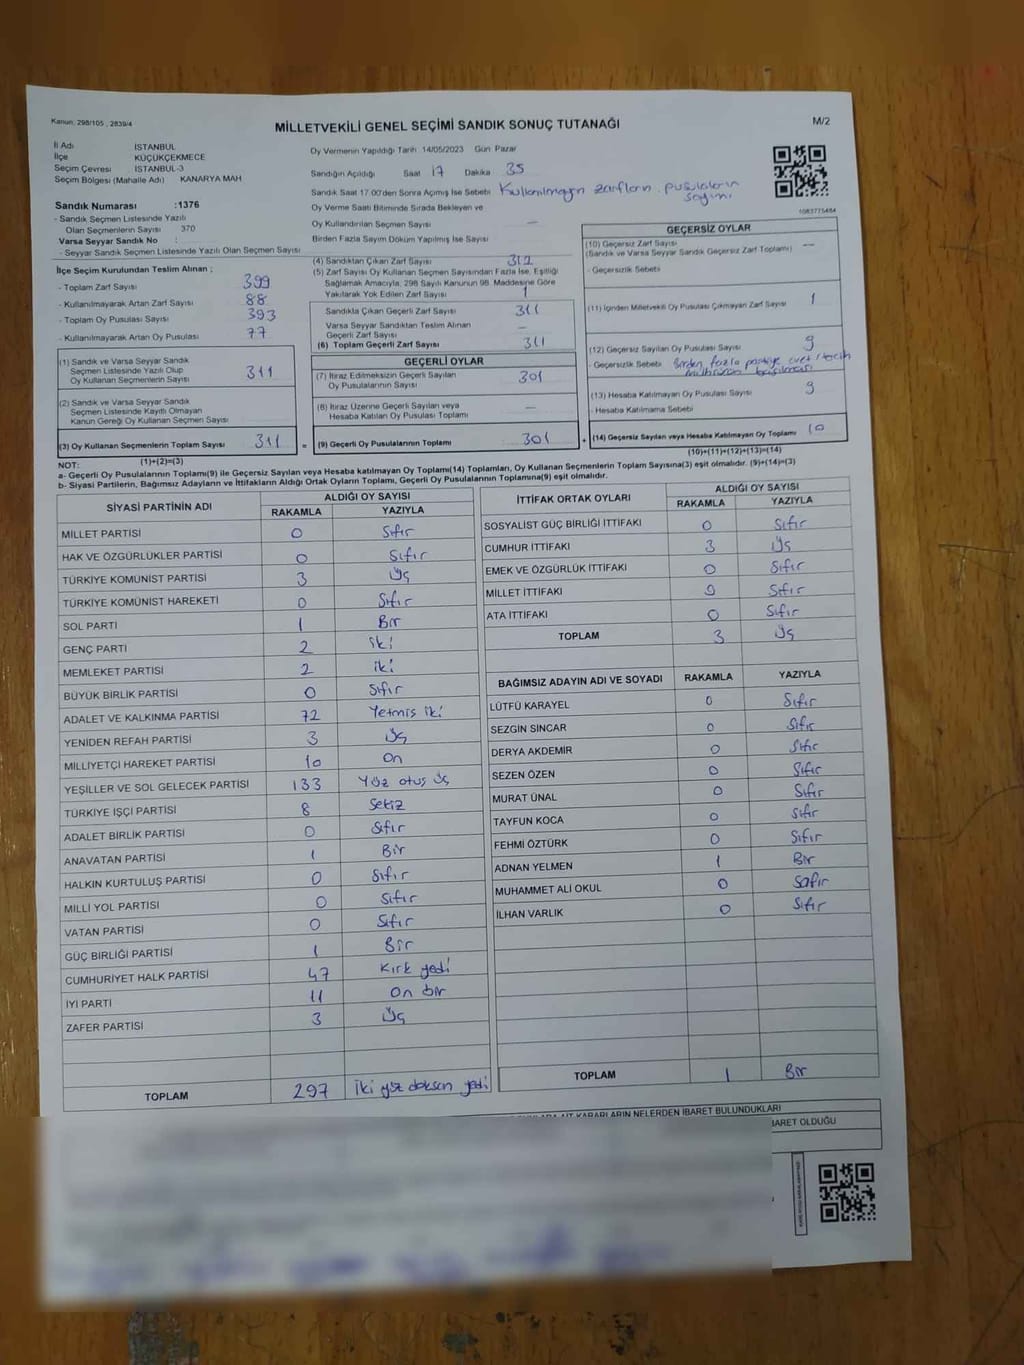 Kanun; 298/105 , 2839/4
MİLLETVEKİLİ GENEL SEÇİMİ SANDIK SONUÇ TUTANAĞI
M/2
İl Adı İSTANBUL
İlçe KÜÇÜKÇEKMECE
Seçim Çevresi İSTANBUL-3
Seçim Bölgesi (Mahalle Adı) KANARYA MAH
Sandık Numarası :1376
- Sandık Seçmen Listesinde Yazılı
Olan Seçmenlerin Sayısı 370
Varsa Seyyar Sandık No :
- Seyyar Sandık Seçmen Listesinde Yazılı Olan Seçmen Sayısı
Oy Vermenin Yapıldığı Tarih 14/05/2023 Gün Pazar
Sandığın Açıldığı Saat 17 Dakika 35
Sandık Saat 17.00'den Sonra Açımış İse Sebebi Kullanılmayan zarfların, pusulaların
sayımı
Oy Verme Saati Bitiminde Sırada Bekleyen ve
Oy Kullandırılan Seçmen Sayısı —
Birden Fazla Sayım Döküm Yapılmış İse Sayısı
1083775484
İlçe Seçim Kurulundan Teslim Alınan ;
- Toplam Zarf Sayısı 399
- Kullanılmayarak Artan Zarf Sayısı 88
- Toplam Oy Pusulası Sayısı 393
- Kullanılmayarak Artan Oy Pusulası 77
(1) Sandık ve Varsa Seyyar Sandık
Seçmen Listesinde Yazılı Olup
Oy Kullanan Seçmenlerin Sayısı 311
(2) Sandık ve Varsa Seyyar Sandık
Seçmen Listesinde Kayıtlı Olmayan
Kanun Gereği Oy Kullanan Seçmen Sayısı
(3) Oy Kullanan Seçmenlerin Toplam Sayısı 311
(1)+(2)=(3)
(4) Sandıktan Çıkan Zarf Sayısı 312
(5) Zarf Sayısı Oy Kullanan Seçmen Sayısından Fazla İse, Eşitliği
Sağlamak Amacıyla, 298 Sayılı Kanunun 98. Maddesine Göre
Yakılarak Yok Edilen Zarf Sayısı 1
Sandıkla Çıkan Geçerli Zarf Sayısı 311
Varsa Seyyar Sandıktan Teslim Alınan
Geçerli Zarf Sayısı —
(6) Toplam Geçerli Zarf Sayısı 311
GEÇERLİ OYLAR
(7) İtiraz Edilmeksizin Geçerli Sayılan
Oy Pusulalarının Sayısı 301
(8) İtiraz Üzerine Geçerli Sayılan veya
Hesaba Katılan Oy Pusulası Toplamı —
= (9) Geçerli Oy Pusulalarının Toplamı 301 +
GEÇERSİZ OYLAR
(10) Geçersiz Zarf Sayısı —
(Sandık ve Varsa Seyyar Sandık Geçersiz Zarf Toplamı)
- Geçersizlik Sebebi
(11) İçinden Milletvekili Oy Pusulası Çıkmayan Zarf Sayısı 1
(12) Geçersiz Sayılan Oy Pusulası Sayısı 9
- Geçersizlik Sebebi Birden fazla partiye evet/tercih
mührünün basılması
(13) Hesaba Katılmayan Oy Pusulası Sayısı 9
- Hesaba Katılmama Sebebi
(14) Geçersiz Sayılan veya Hesaba Katılmayan Oy Toplamı 10
(10)+(11)+(12)+(13)=(14)
NOT:
a- Geçerli Oy Pusulalarının Toplamı(9) ile Geçersiz Sayılan veya Hesaba katılmayan Oy Toplamı(14) Toplamları, Oy Kullanan Seçmenlerin Toplam Sayısına(3) eşit olmalıdır. (9)+(14)=(3)
b- Siyasi Partilerin, Bağımsız Adayların ve İttifakların Aldığı Ortak Oyların Toplamı, Geçerli Oy Pusulalarının Toplamına(9) eşit olmalıdır.
SİYASİ PARTİNİN ADI ALDIĞI OY SAYISI
RAKAMLA YAZIYLA
MİLLET PARTİSİ 0 Sıfır
HAK VE ÖZGÜRLÜKLER PARTİSİ 0 Sıfır
TÜRKİYE KOMÜNİST PARTİSİ 3 Üç
TÜRKİYE KOMÜNİST HAREKETİ 0 Sıfır
SOL PARTİ 1 Bir
GENÇ PARTİ 2 iki
MEMLEKET PARTİSİ 2 iki
BÜYÜK BİRLİK PARTİSİ 0 Sıfır
ADALET VE KALKINMA PARTİSİ 72 Yetmiş iki
YENİDEN REFAH PARTİSİ 3 Üç
MİLLİYETÇİ HAREKET PARTİSİ 10 On
YEŞİLLER VE SOL GELECEK PARTİSİ 133 Yüz otuz üç
TÜRKİYE İŞÇİ PARTİSİ 8 Sekiz
ADALET BİRLİK PARTİSİ 0 Sıfır
ANAVATAN PARTİSİ 1 Bir
HALKIN KURTULUŞ PARTİSİ 0 Sıfır
MİLLİ YOL PARTİSİ 0 Sıfır
VATAN PARTİSİ 0 Sıfır
GÜÇ BİRLİĞİ PARTİSİ 1 Bir
CUMHURİYET HALK PARTİSİ 47 Kırk yedi
İYİ PARTİ 11 On bir
ZAFER PARTİSİ 3 Üç
TOPLAM 297 iki yüz doksan yedi
İTTİFAK ORTAK OYLARI ALDIĞI OY SAYISI
RAKAMLA YAZIYLA
SOSYALİST GÜÇ BİRLİĞİ İTTİFAKI 0 Sıfır
CUMHUR İTTİFAKI 3 Üç
EMEK VE ÖZGÜRLÜK İTTİFAKI 0 Sıfır
MİLLET İTTİFAKI 0 Sıfır
ATA İTTİFAKI 0 Sıfır
TOPLAM 3 Üç
BAĞIMSIZ ADAYIN ADI VE SOYADI RAKAMLA YAZIYLA
LÜTFÜ KARAYEL 0 Sıfır
SEZGİN SİNCAR 0 Sıfır
DERYA AKDEMİR 0 Sıfır
SEZEN ÖZEN 0 Sıfır
MURAT ÜNAL 0 Sıfır
TAYFUN KOCA 0 Sıfır
FEHMİ ÖZTÜRK 0 Sıfır
ADNAN YELMEN 1 Bir
MUHAMMET ALİ OKUL 0 Safır
İLHAN VARLIK 0 Sıfır
TOPLAM 1 Bir
KARARLARIN NELERDEN İBARET BULUNDUKLARI
İBARET OLDUĞU